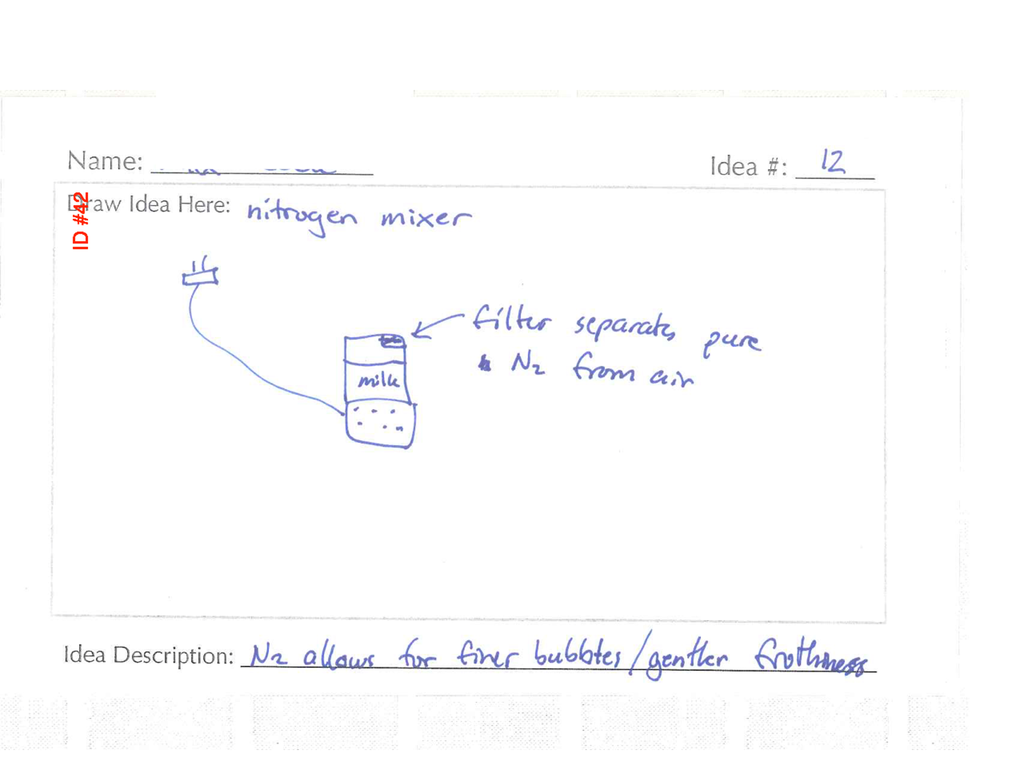 Name:
Idea #: 12
ID #42
Draw Idea Here: nitrogen mixer
filter separates pure
N2 from air
milk
Idea Description: N2 allows for finer bubbles/gentler frothiness